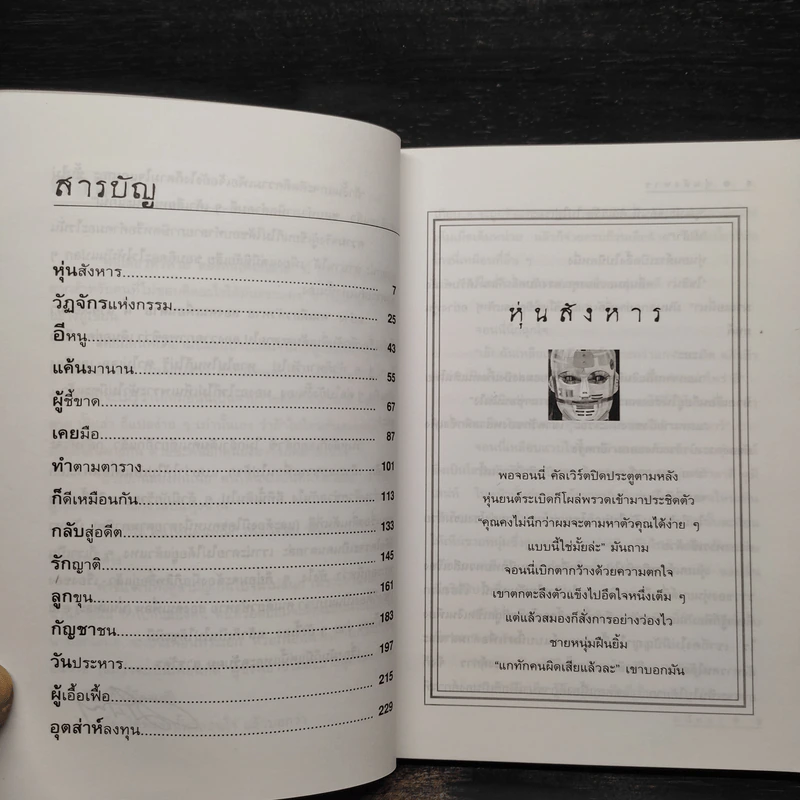 สารบัญ
หุ่นสังหาร........................7
วัฏจักรแห่งกรรม........................25
อีหนู........................43
แค้นมานาน........................55
ผู้ชี้ขาด........................67
เคยมือ........................87
ทำตามตาราง........................101
ก็ดีเหมือนกัน........................113
กลับสู่อดีต........................133
รักญาติ........................145
ลูกขุน........................161
กัญชาชน........................183
วันประหาร........................197
ผู้เอื้อเฟื้อ........................215
อุตส่าห์ลงทุน........................229
หุ่นสังหาร
พอจอนนี่ คัลเวิร์ตปิดประตูตามหลัง
หุ่นยนต์ระเบิดก็โผล่พรวดเข้ามาประชิดตัว
"คุณคงไม่นึกว่าผมจะตามหาตัวคุณได้ง่าย ๆ
แบบนี้ใช่มั้ยล่ะ" มันถาม
จอนนี่เบิกตากว้างด้วยความตกใจ
เขาตกตะลึงตัวแข็งไปอึดใจหนึ่งเต็ม ๆ
แต่แล้วสมองก็สั่งการอย่างว่องไว
ชายหนุ่มฝืนยิ้ม
"แกทักคนผิดเสียแล้วละ" เขาบอกมัน